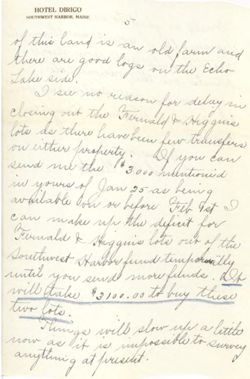 HOTEL DIRIGO
SOUTHWEST HARBOR, MAINE
5
of this land is an old farm and
there are good logs on the Echo
Lake side.
I see no reason for delay in
closing out the Fernald & Higgins
lots as there have been few transfers
on either property. If you can
send me the $3000 mentioned
in yours of Jan 25 as being
available on or before Feb 1st I
can make up the deficit for
Fernald & Higgins lots out of the
Southwest Harbor fund temporarily
until you send more funds. It
will take $3100.00 to buy these
two lots.
Things will slow up a little
now as it is impossible to survey
anything at present.